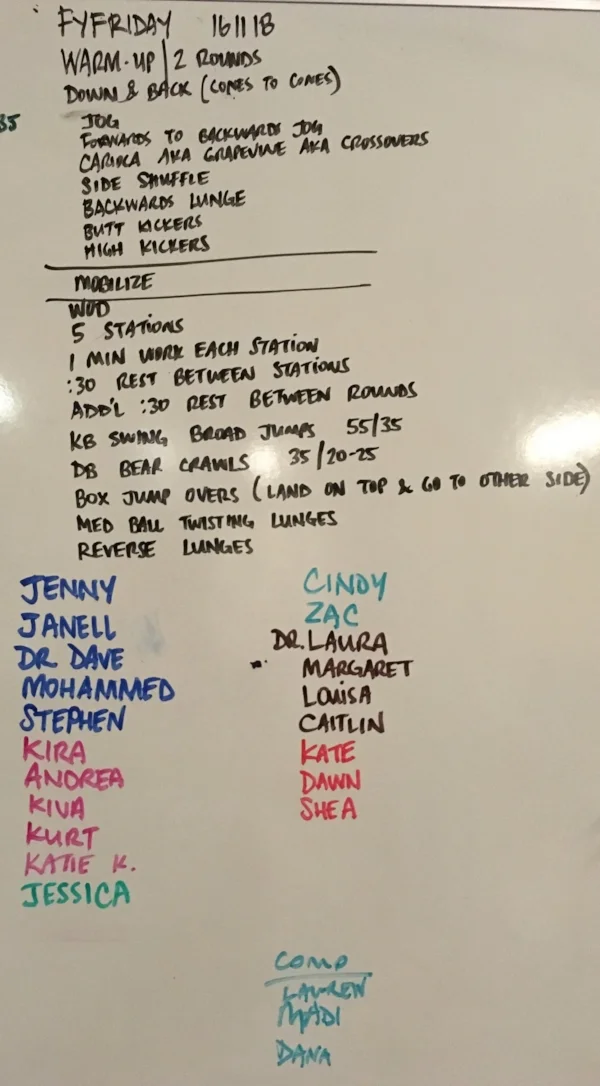 FYFRIDAY 161118
WARM-UP | 2 ROUNDS
DOWN & BACK (CONES TO CONES)
JOG
FORWARDS TO BACKWARDS JOG
CARIOCA AKA GRAPEVINE AKA CROSSOVERS
SIDE SHUFFLE
BACKWARDS LUNGE
BUTT KICKERS
HIGH KICKERS
MOBILIZE
WOD
5 STATIONS
1 MIN WORK EACH STATION
:30 REST BETWEEN STATIONS
ADD'L :30 REST BETWEEN ROUNDS
KB SWING BROAD JUMPS 55/35
DB BEAR CRAWLS 35/20-25
BOX JUMP OVERS (LAND ON TOP & GO TO OTHER SIDE)
MED BALL TWISTING LUNGES
REVERSE LUNGES
JENNY
JANELL
DR DAVE
MOHAMMED
STEPHEN
KIRA
ANDREA
KIVA
KURT
KATIE K.
JESSICA
CINDY
ZAC
DR. LAURA
MARGARET
LOUISA
CAITLIN
KATE
DAWN
SHEA
COMP
LAUREN
MADI
DANA